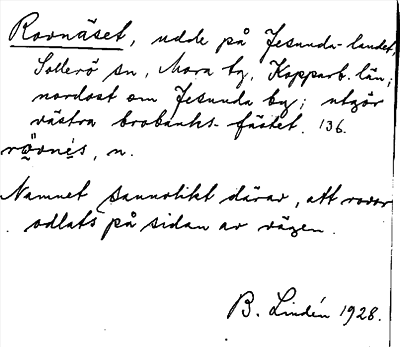 Rovnäset, udde på Jesunda-landet,
Sollerö sn, Mora tg, Kopparb. län;
nordost om Jesunda by; utgör
västra brobanks-fästet. 136.
n.
Namnet sannolikt därav, att rovor
odlats på sidan av vägen.
B. Lindén 1928.